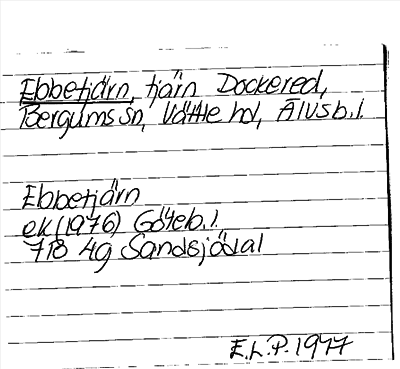 Ebbetjärn, tjärn Dockered,
Bergums sn, Vättle hd, Älvsb. l.
Ebbetjärn
ek (1976) Göteb. l.
7B 4g Sandsjödal
E.L.P. 1977